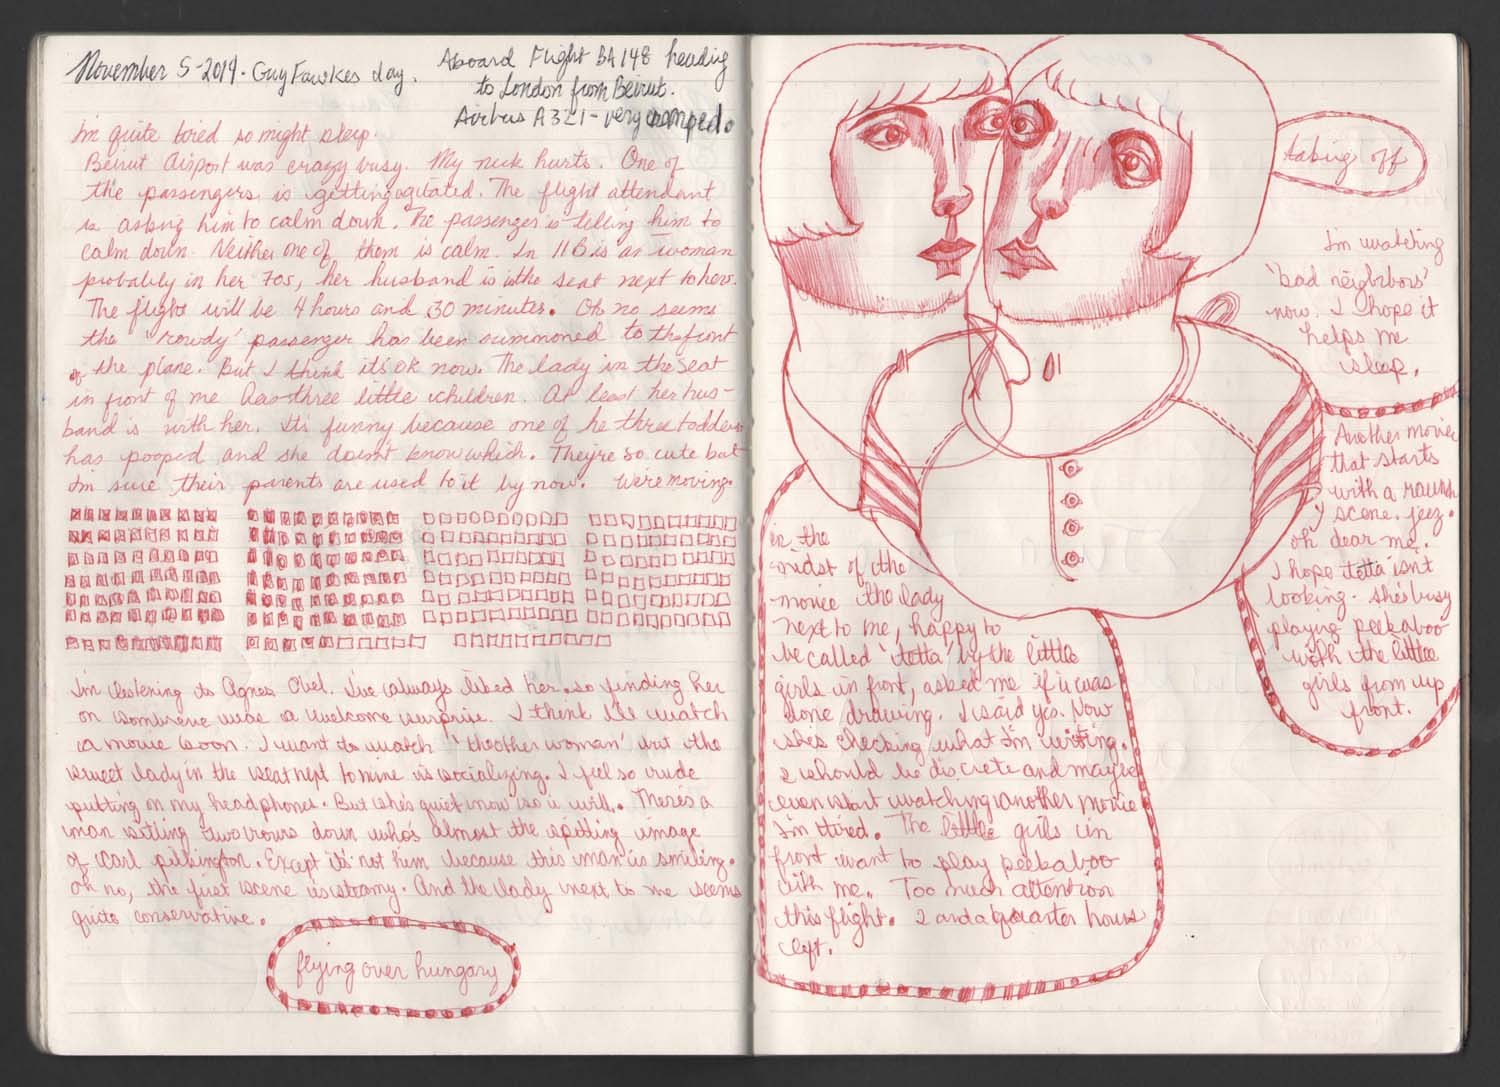 November 5-2014. Guy Fawkes day.
Aboard Flight BA148 heading
to London from Beirut.
Airbus A321-very cramped.
I'm quite bored so might sleep.
Beirut Airport was crazy busy. My neck hurts. One of
the passengers is getting agitated. The flight attendant
is asking him to calm down. The passenger is telling him to
calm down. Neither one of them is calm. In 11B is a woman
probably in her 70s, her husband is in the seat next to hers.
The flight will be 4 hours and 30 minutes. Oh no seems
the 'rowdy' passenger has been summoned to the front
of the plane. But I think it's ok now. The lady in the seat
in front of me has three little children. At least her hus-
band is with her. It's funny because one of he three toddlers
has pooped and she doesn't know which. They're so cute but
I'm sure their parents are used to it by now. We're moving.
I'm listening to Agnes Obel. I've always liked her so finding her
on sombrero was a welcome surprise. I think I'll watch
a movie soon. I want to watch 'the other woman' but the
sweet lady in the seat next to mine is socializing. I feel so rude
putting on my headphones. But she's quiet now so i will. There's a
man sitting two rows down who's almost the spitting image
of Karl pilkington. Except it's not him because this man is smiling.
oh no, the first scene is steamy. And the lady next to me seems
quite conservative.
flying over hungary
taking off
I'm watching
'bad neighbors'
now. I hope it
helps me
sleep.
Another movie
that starts
with a raunch
y scene. jeez.
oh dear me.
I hope tetta isn't
looking. She's busy
playing peekaboo
with the little
girls from up
front.
in the
midst of the
movie the lady
next to me, happy to
be called 'tetta' by the little
girls in front, asked me if i was
done drawing. I said yes. Now
she's checking what I'm writing.
I should be discrete and maybe
even start watching another movie
I'm tired. The little girls in
front want to play peekaboo
with me. Too much attention
this flight. 2 and a quarter hours
left.